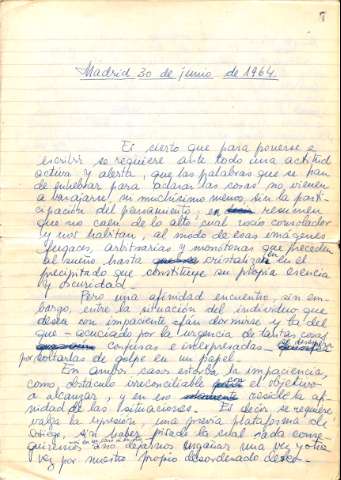 Madrid 30 de junio de 1964.
Es cierto que para ponerse a
escribir se requiere ante todo una actitud
activa y alerta, que las palabras que se han
de enhebrar para aclarar las cosas no vienen
a barajarse, ni muchísimo menos, sin la parti-
cipación del pensamiento, en resumen
que no caen de lo alto cual rocío consolador
y nos habitan, al modo de esas imágenes
fugaces, arbitrarias y monótonas que preceden
al sueño hasta cristalizar en el
precipitado que constituye su propia esencia
y oscuridad.
Pero una afinidad encuentro, sin em-
bargo, entre la situación del individuo que
desea con impaciente afán dormirse y la del
que - acuciado por la urgencia de tantas cosas
confusas e inexpresadas -
por soltarlas de golpe en un papel.
En ambos casos estorba la impaciencia,
como obstáculo irreconciliable con el objetivo
a alcanzar, y en eso reside la afi-
nidad de las situaciones. Es decir se requiere
valga la expresión, una previa plataforma de
sosiego, sin haber pisado la cual nada conse-
guiremos sino dejarnos engañar una vez y otra
vez por nuestro propio desordenado deseo-